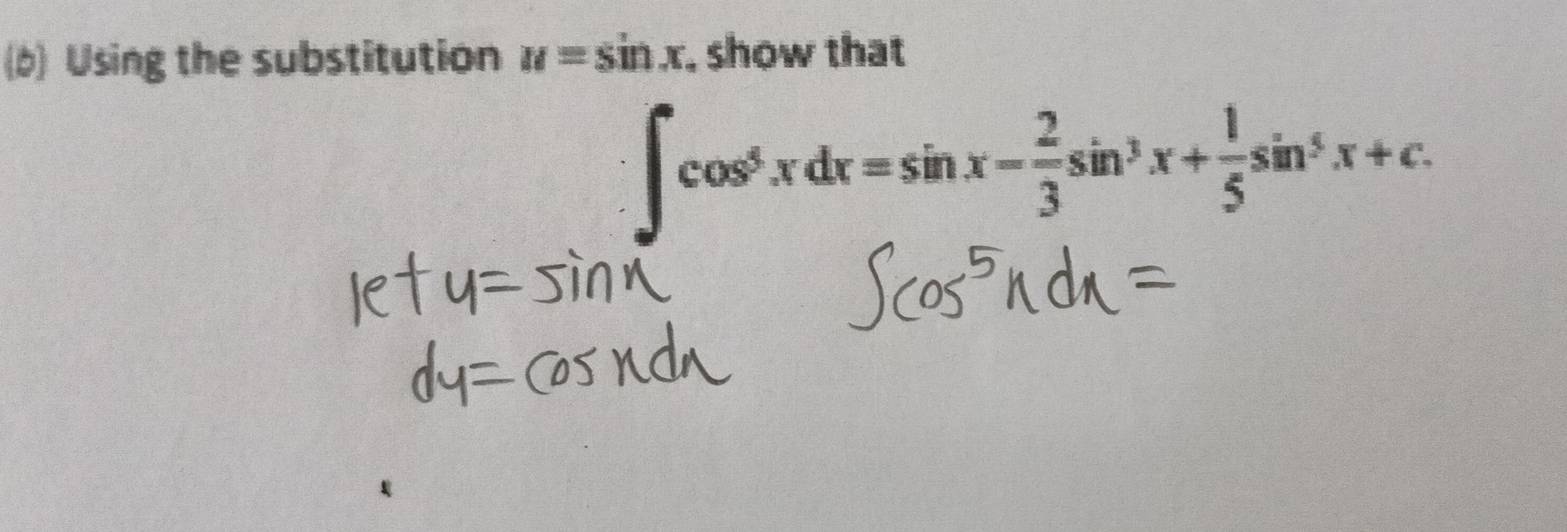 (b) Using the substitution u = sin x, show that
∫cos⁵ x dx = sin x − 2/3 sin³ x + 1/5 sin⁵ x + c.
let u = sinx ∫cos⁵x dx =
du = cos xdx